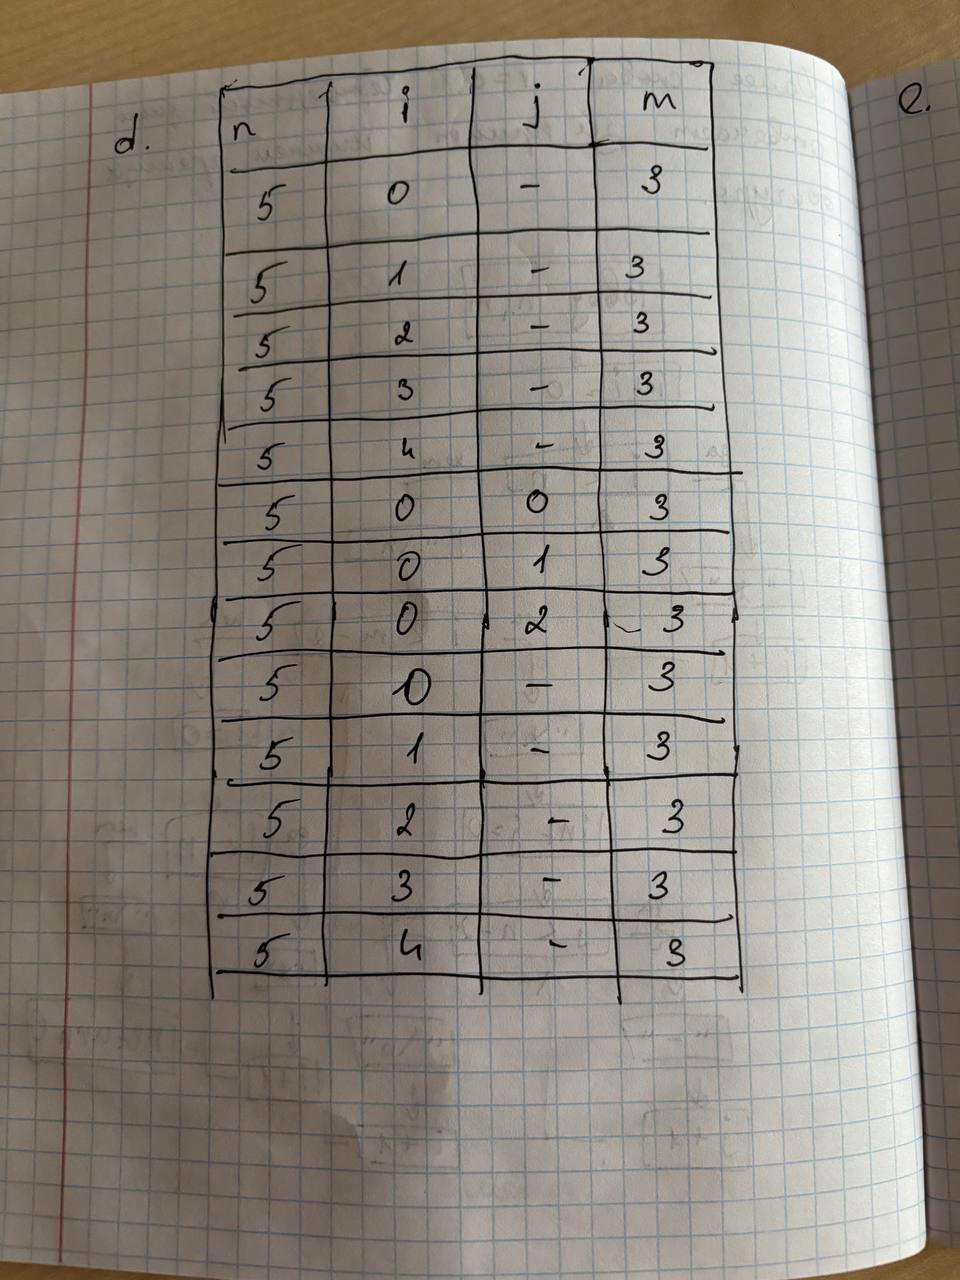 d.
n i j m
5 0 - 3
5 1 - 3
5 2 - 3
5 3 - 3
5 4 - 3
5 0 0 3
5 0 1 3
5 0 2 3
5 0 - 3
5 1 - 3
5 2 - 3
5 3 - 3
5 4 - 3
e.